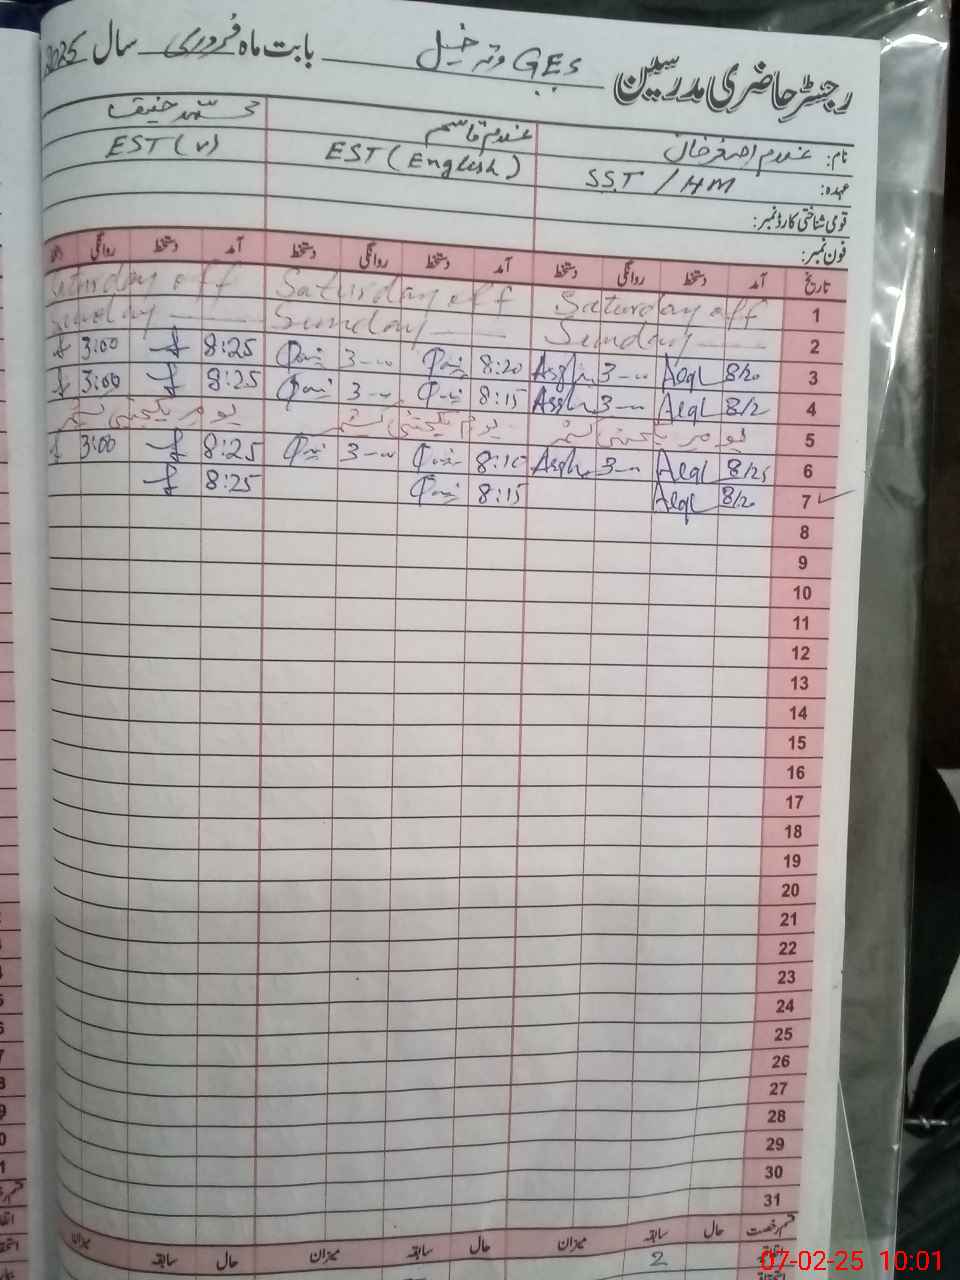 رجسٹر حاضری مدرسین GES وتہ خیل بابت ماہ فروری سال 2025
نام: غلام اصغر خان غلام قاسم محمد حنیف
عہدہ: SST / HM EST (English) EST (V)
قومی شناختی کارڈ نمبر:
فون نمبر:
تاریخ آمد دستخط روانگی دستخط آمد دستخط روانگی دستخط آمد دستخط روانگی
1 Saturday off Saturday off Saturday off
2 Sunday Sunday Sunday
3 8/20 3 8:20 3 8:25 3:00
4 8/2 3 8:15 3 8:25 3:00
5 یوم یکجہتی کشمیر یوم یکجہتی کشمیر یوم یکجہتی کشمیر
6 8/25 3 8:10 3 8:25 3:00
7 8/20 8:15 8:25
8
9
10
11
12
13
14
15
16
17
18
19
20
21
22
23
24
25
26
27
28
29
30
31
قسم رخصت حال سابقہ میزان حال سابقہ میزان حال سابقہ میزان
اتفاقیہ 2
07-02-25 10:01